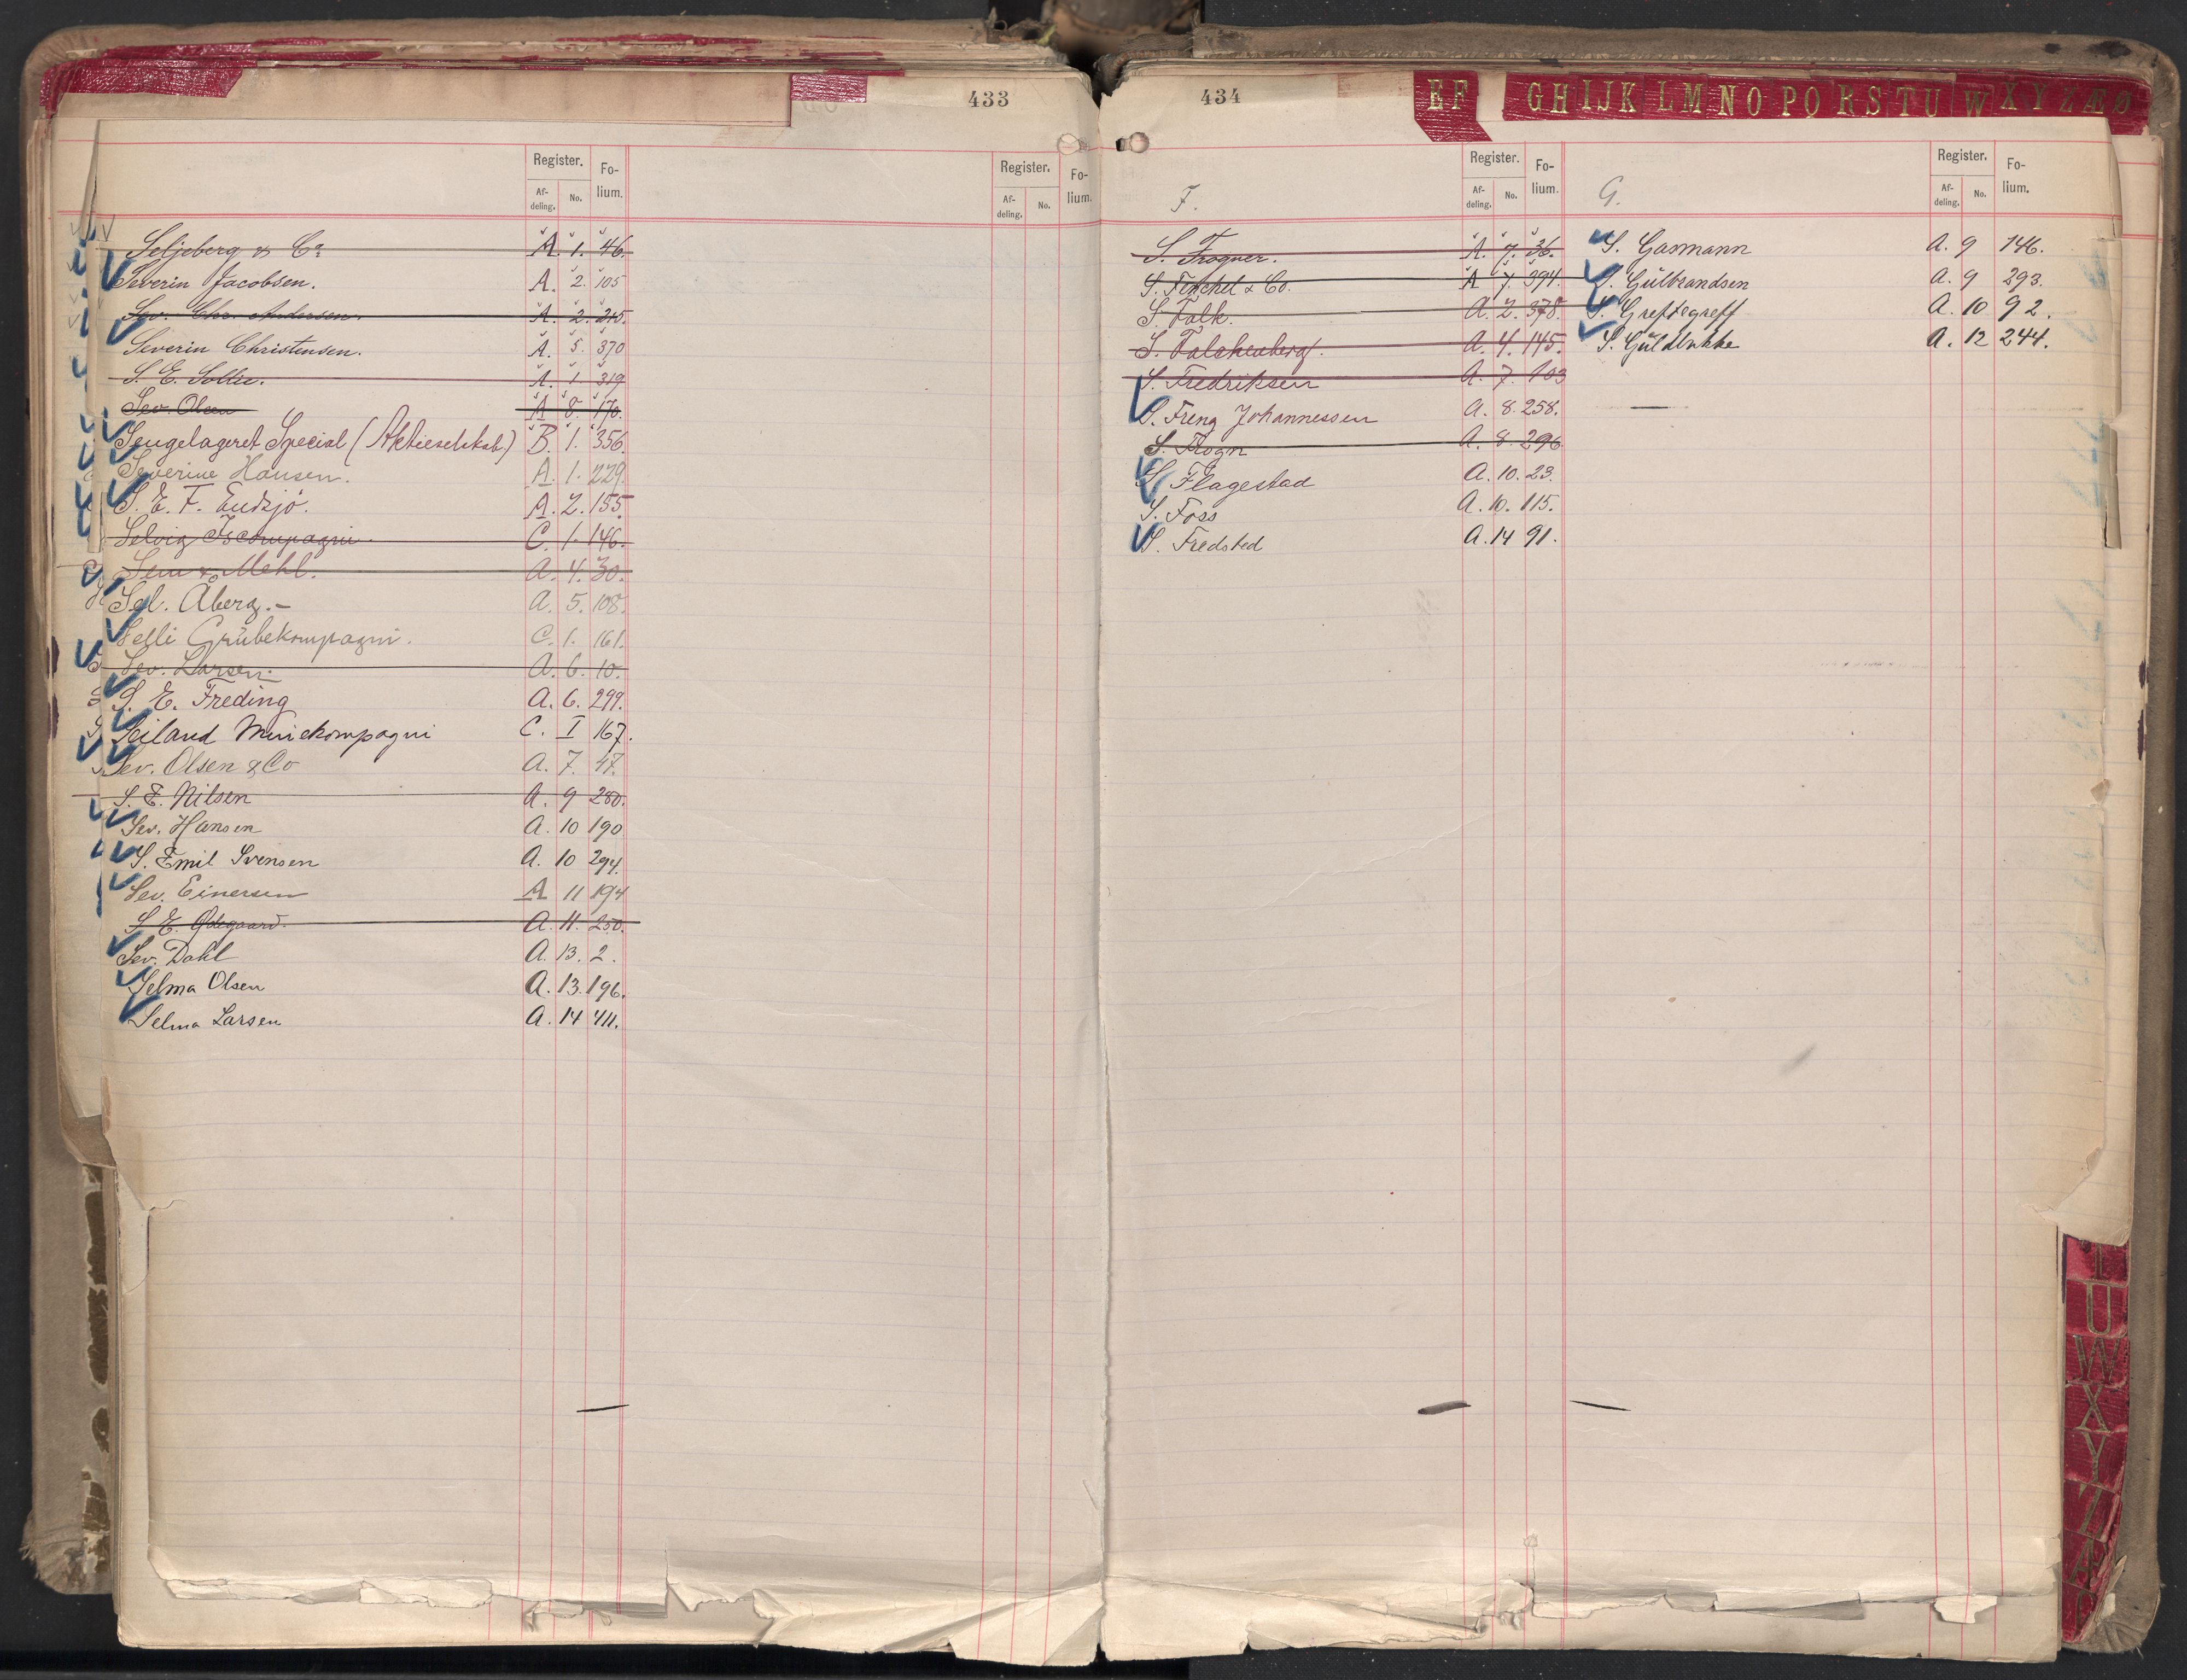 433
Register. Fo-
lium.
Af-
deling. No.
Register. Fo-
lium.
Af-
deling. No.
Seljeberg & Co A. 1. 46.
Severin Jacobsen. A. 2. 105
Sev. Chr. Andersen. A. 2. 215.
Severin Christensen. A. 5. 370
S. E. Sollie. A. 1. 319
Sev. Olsen A. 8. 170.
Sengelageret Special (Aktieselskab.) B. 1. 356.
Severine Hansen. A. 1. 229.
S. E. F. Eudsjö. A. 2. 155.
Selvig Iscompagni. C. 1. 146.
Sem & Mehl. A. 4. 30.
Sel. Åberg. – A. 5. 108.
Selli Grubekompagni. C. 1. 161.
Sev. Larsen. A. 6. 10.
S. E. Freding A. 6. 299.
Seiland Minekompagni C. I 167.
Sev. Olsen & Co A. 7. 47.
S. E. Nilsen A. 9 280.
Sev. Hansen A. 10 190
S. Emil Svensen A. 10 294.
Sev. Einersen A 11 194
S. E. Ødegaard. A. 11. 250.
Sev. Dahl A. 13. 2.
Selma Olsen A. 13. 196.
Selma Larsen A. 14 411.
434
EF GH IJK LM NO PQ RS TU W XY ZÆØ
F.
Register. Fo-
lium.
Af-
deling. No.
S. Frogner. A. 7. 36.
S. Fenchel & Co. A 7. 394.
S. Falk. A. 2. 378.
S. Falchenberg. A. 4. 145.
S. Fredriksen A. 7. 103
S. Freng Johannessen A. 8. 258.
S. Frogn A. 8. 296
S. Flagestad A. 10. 23.
S. Foss A. 10. 115.
S. Fredsted A. 14 91.
G.
Register. Fo-
lium.
Af-
deling. No.
S. Gasmann A. 9 146.
S. Gulbrandsen A. 9 293.
S. Greftegreff A. 10 92.
S. Guldbakke A. 12 244.
U
W
X
Y
Z
Æ